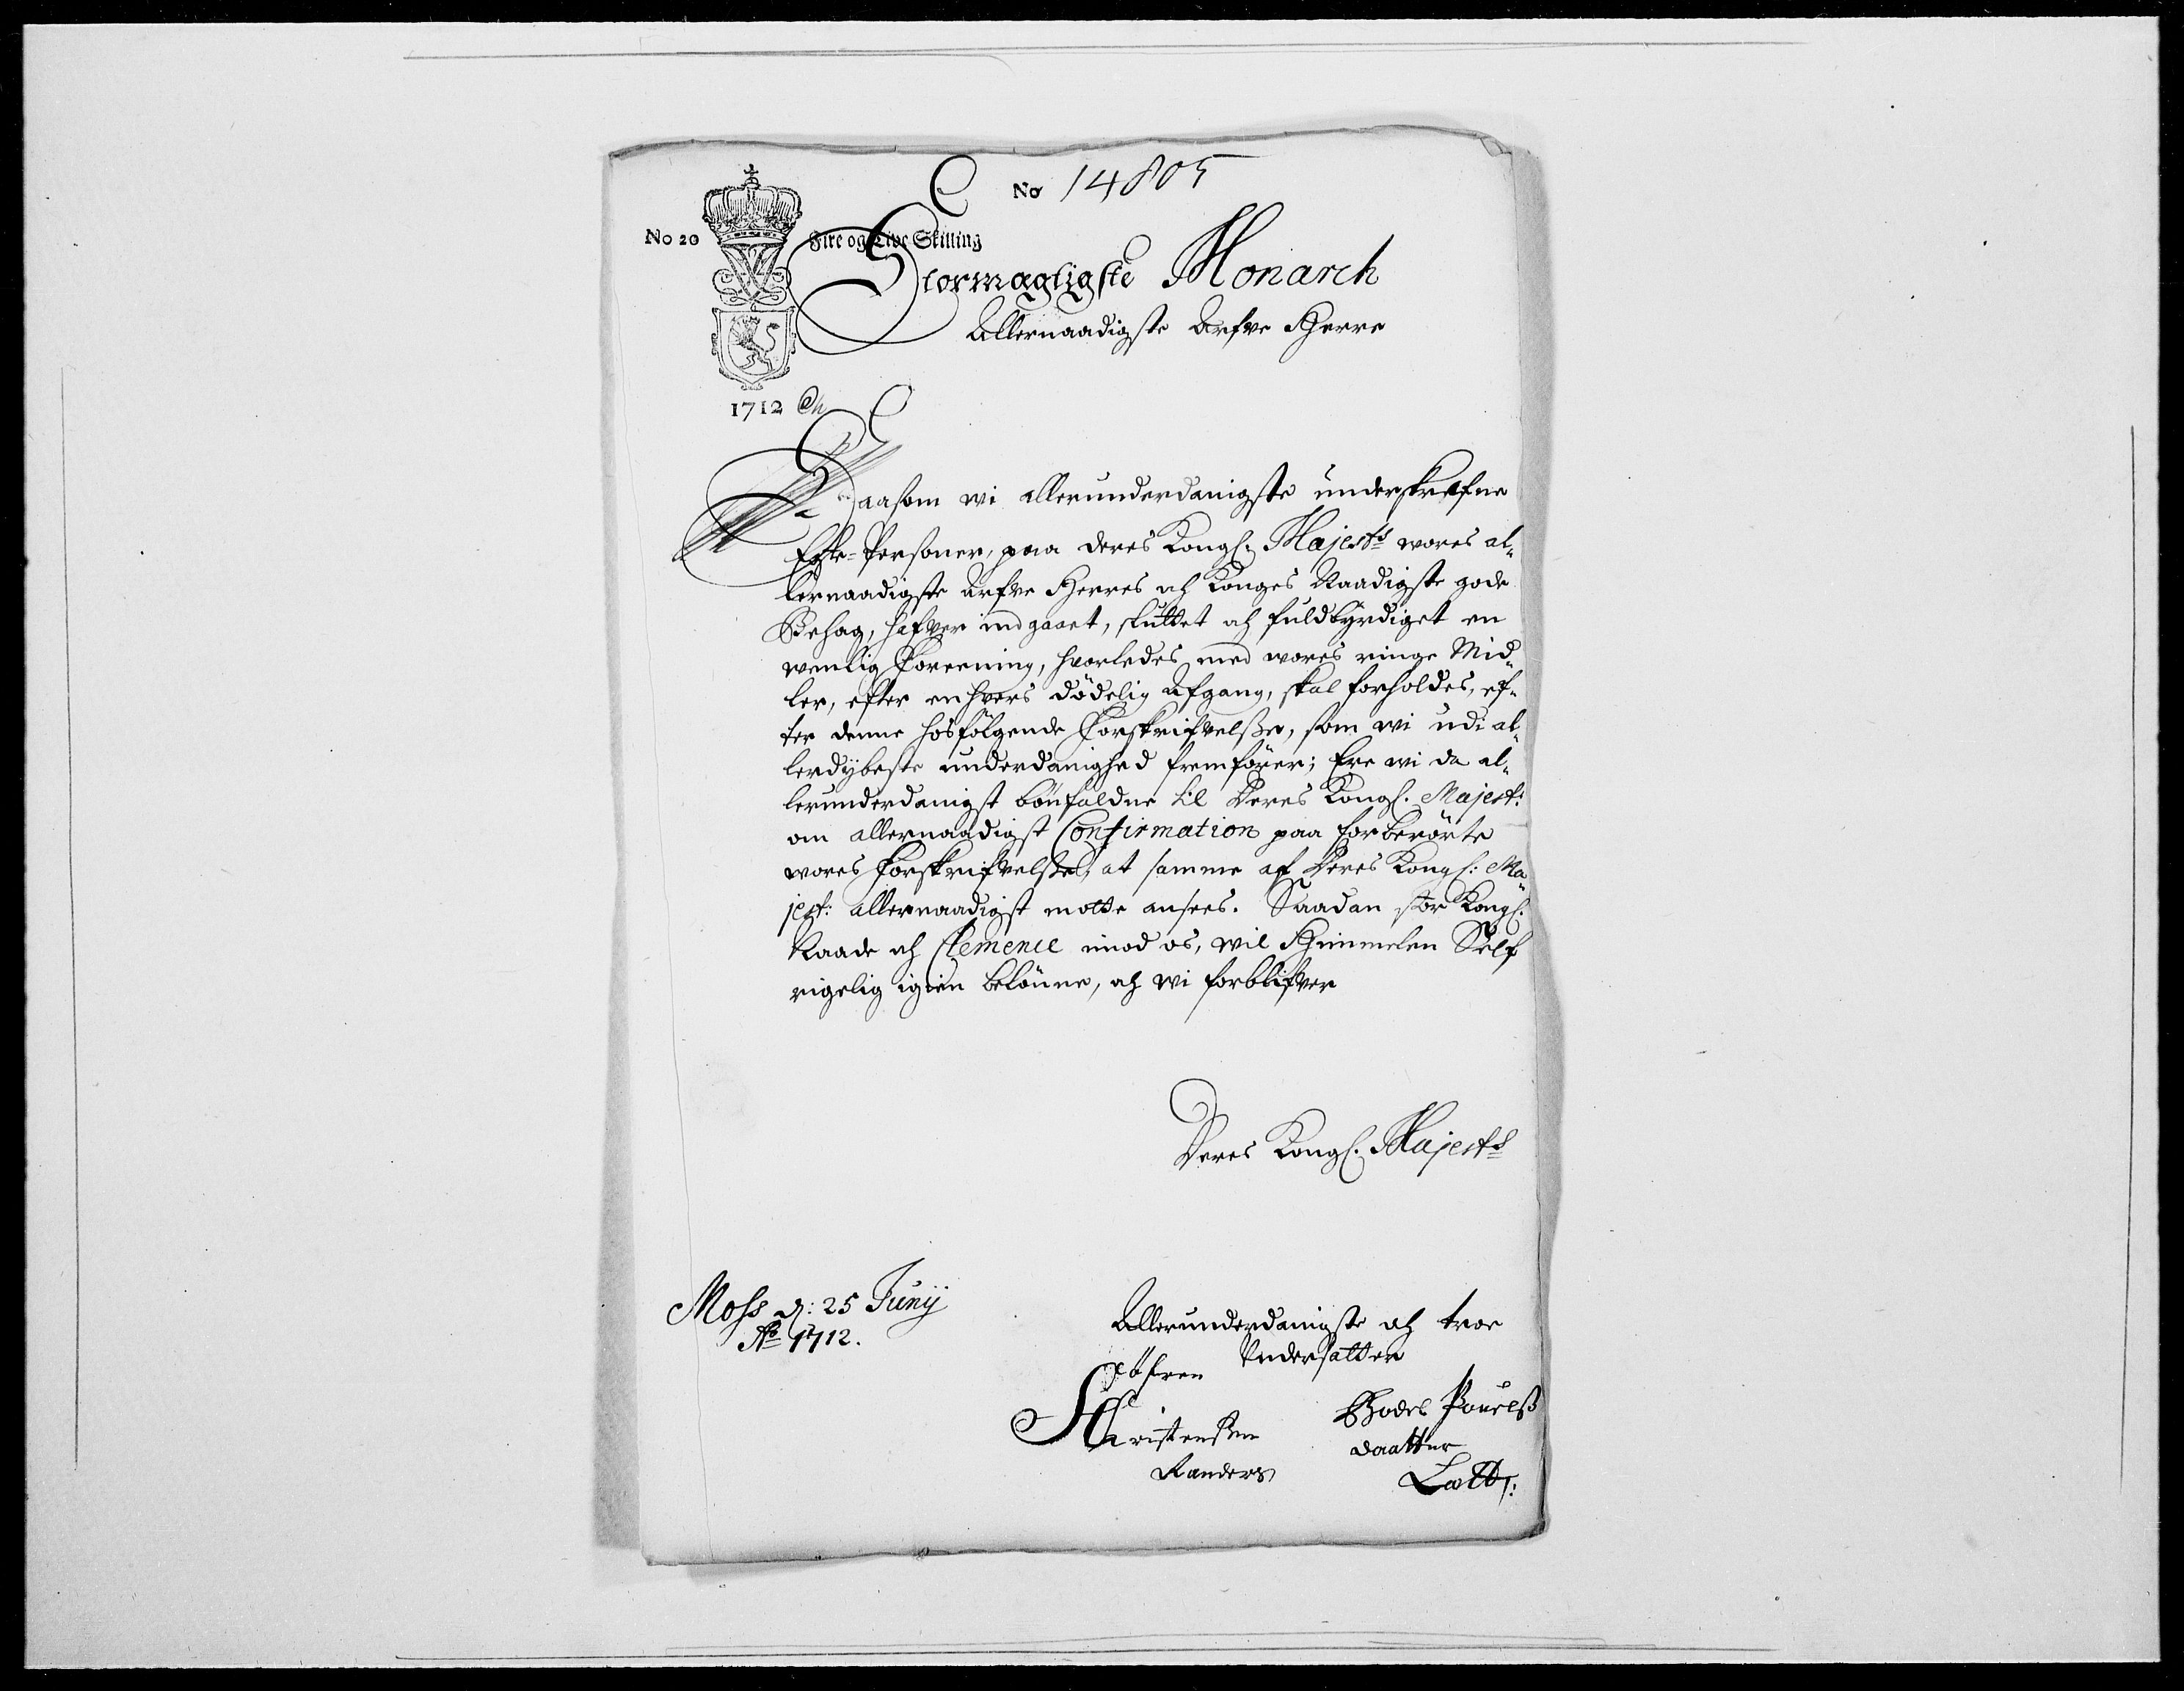 No 14805
No 20 Fire og Tive Skilling
Stormægtigste Monarch
Allernaadigste Arfve Herre
1712
Saasom wi allerunderdanigste underskrefne
Ecte-Personer, paa deres Kongl. Majests wores al„
lernaadigste Arfve Herres och Konges Naadigste gode
Behag, hafver indgaaet, sluttet och fuldbyrdiget en
wenlig Foreening, hvorledes med wores ringe Mid„
ler, efter enhvers dödelig Afgang, skal forholdes, ef„
ter denne hosfölgende Forskrifvelsse, som wi udi al„
lerdybeste underdanighed fremförer; Ere wi da al„
lerunderdanigst bönfaldne til Deres Kongl. Majest:
om allernaadigst Confirmation paa forberörte
wores Forskrifvelse, at samme af Deres Kongl: Ma„
jest: allernaadigst motte ansees. Saadan stor Kongl.
Naade och Clemence imod os, wil Himmelen Self
rigelig igien belönne, och wi forblifver
Deres Kongl. Majests
Moss d: 25 Junij
Ao 1712.
Allerunderdanigste och troe
Undersatter
Söfren
Christensen
Randers
Bodel Pouelss
daatter